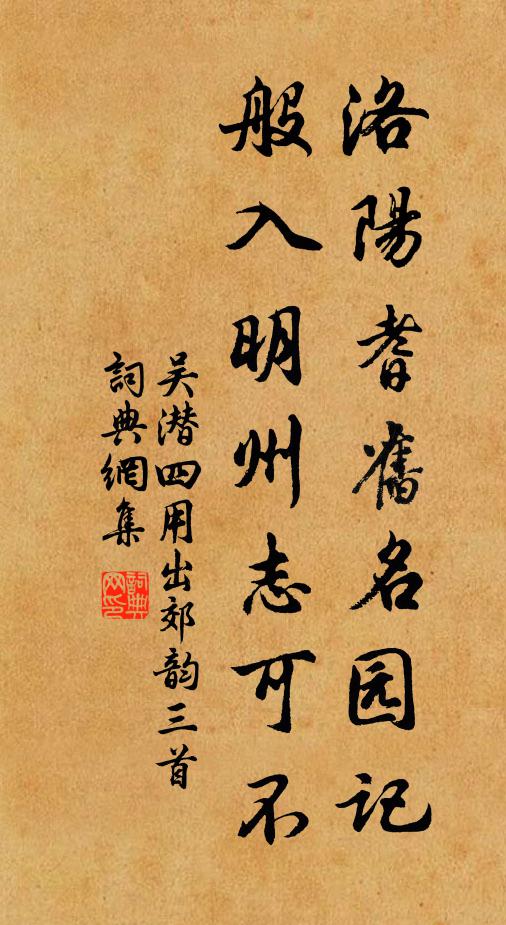 洛陽耆舊名园记
般入明州志可不
吴潜四用出郊韵三首
詞典網集
詞典网印